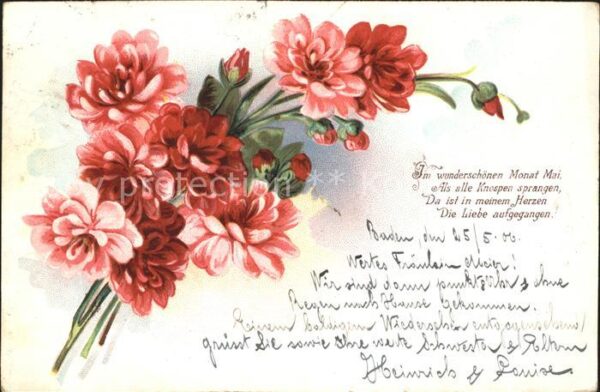 Im wunderschönen Monat Mai.
Als alle Knospen sprangen,
Da ist in meinem Herzen
Die Liebe aufgegangen.
Baden, den 25/5. 00.
Wertes Fräulein Meier!
Wir sind dann pünktlich & ohne
Regen nach Hause gekommen.
Einem baldigen Wiedersehn entgegensehend
grüsst Sie sowie Ihre werte Schwester & Eltern
Heinrich & Louise
protection